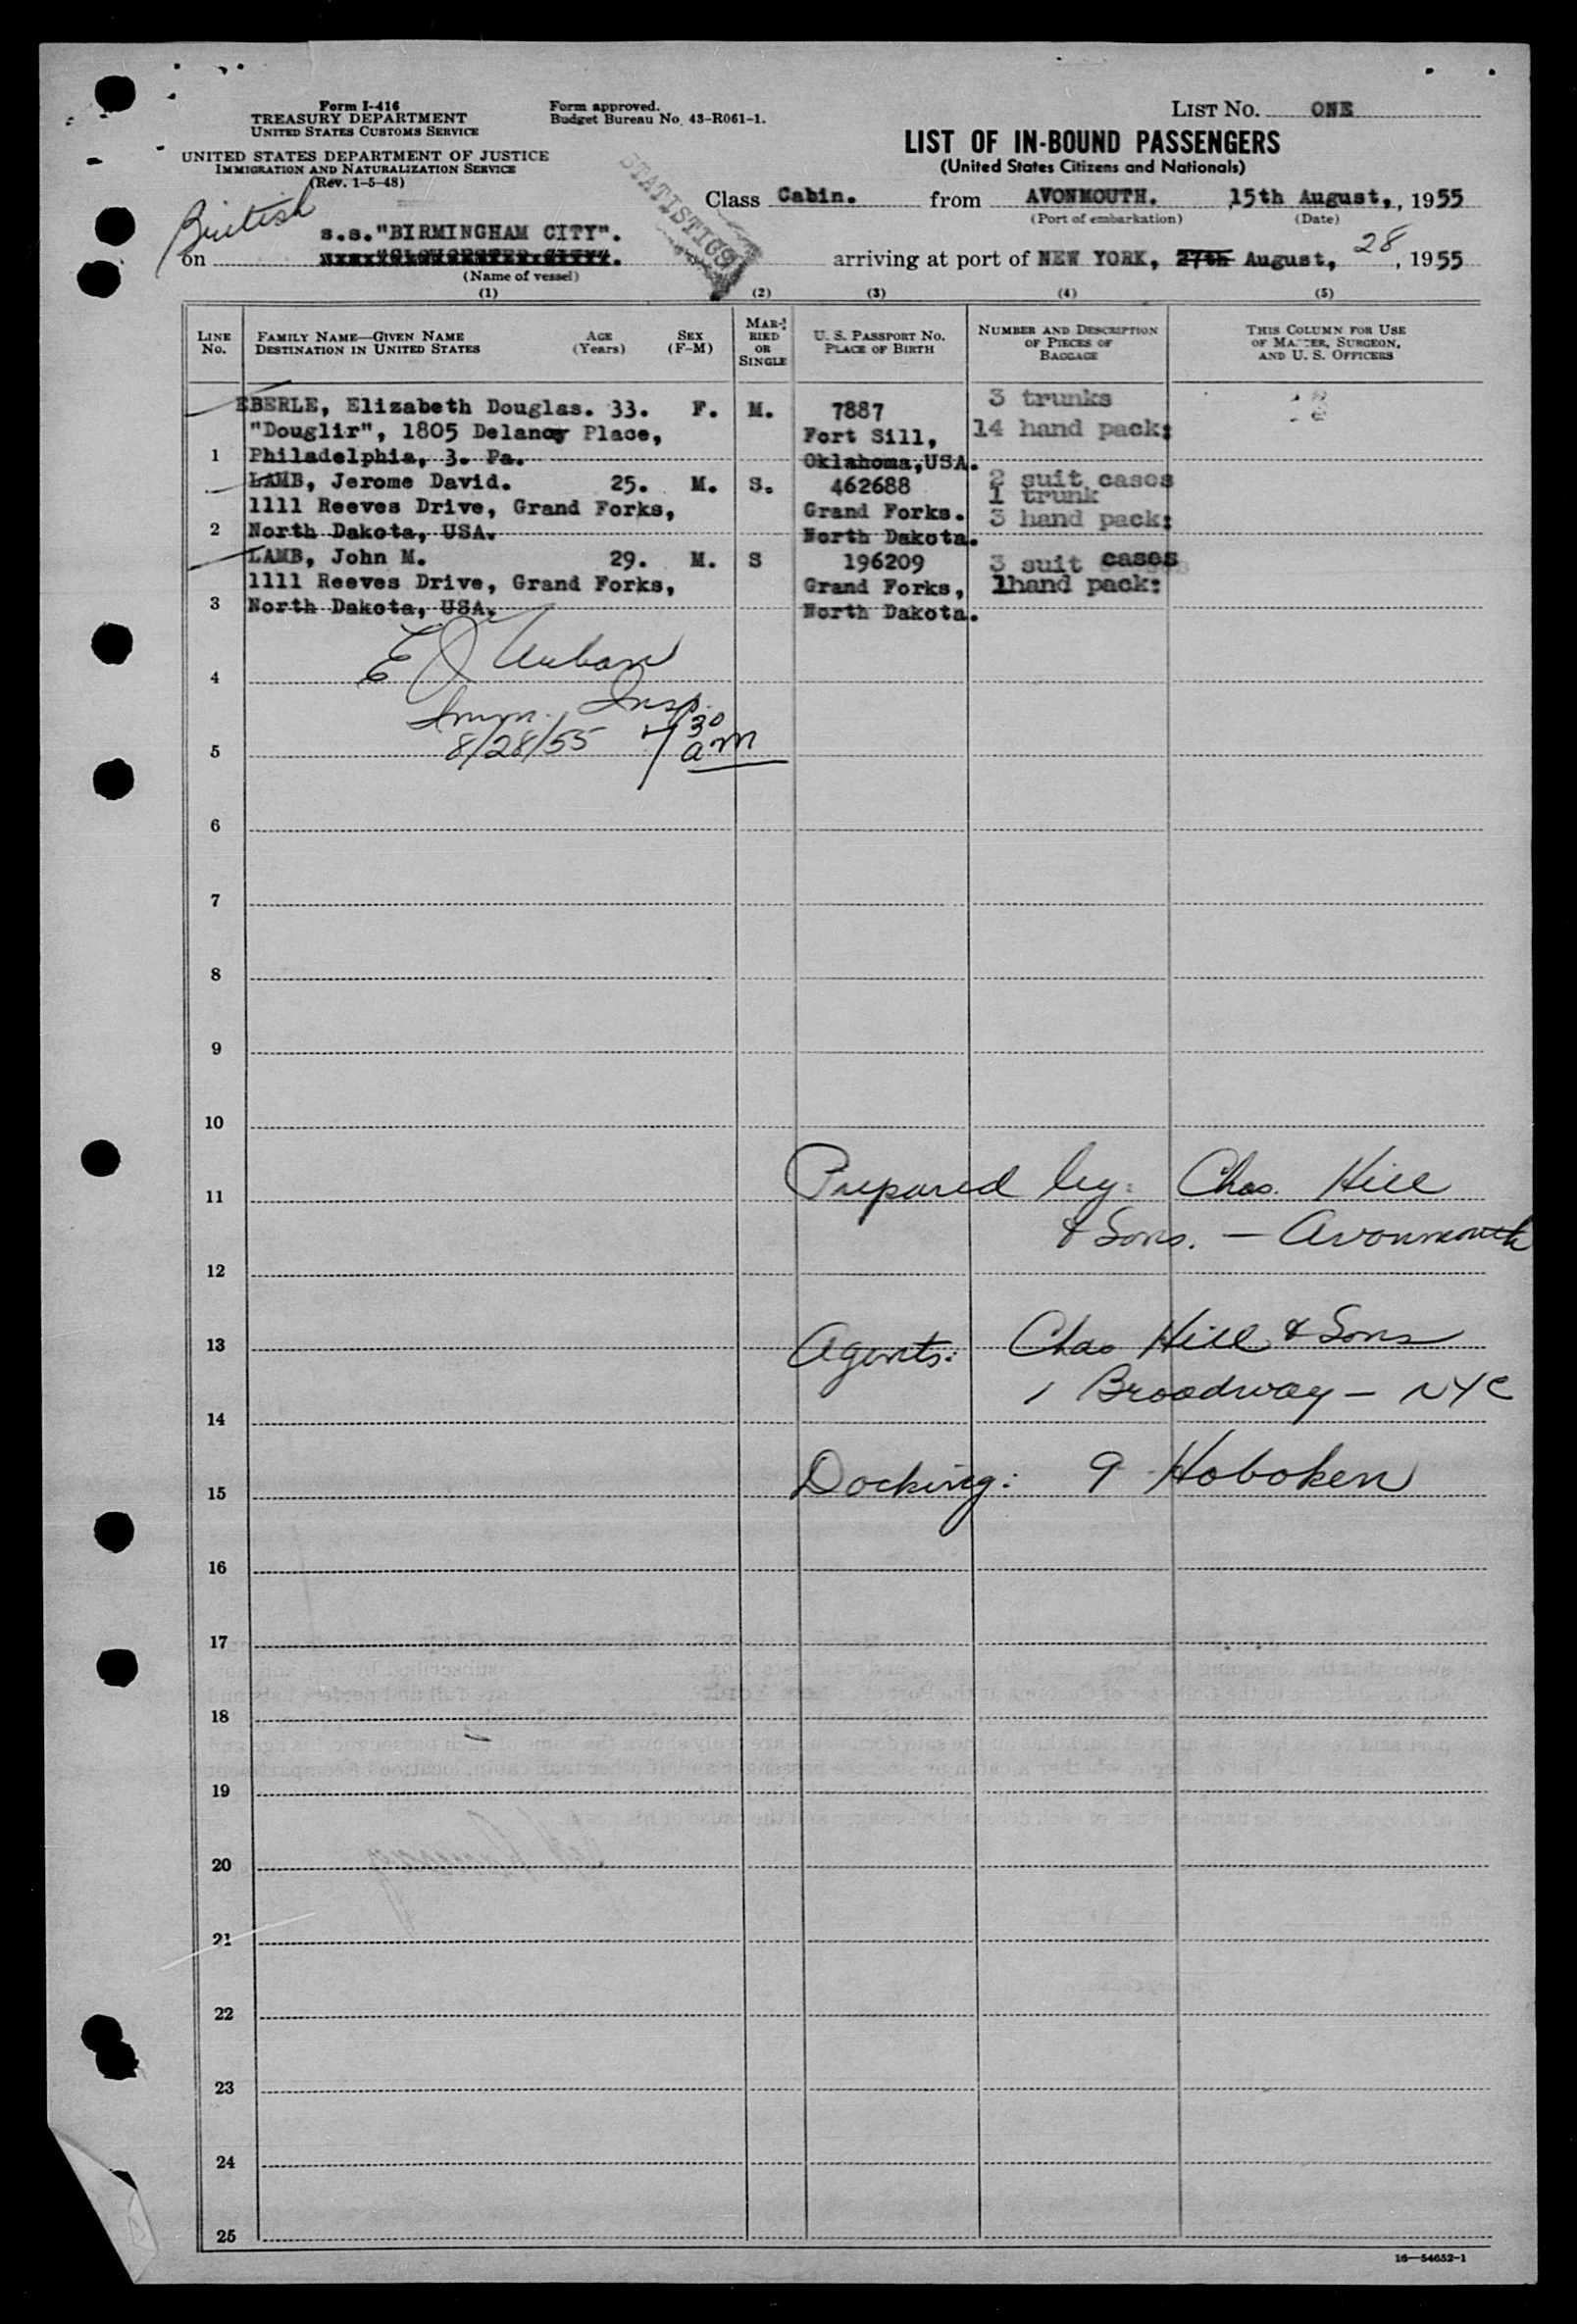 Form I-416
TREASURY DEPARTMENT
UNITED STATES CUSTOMS SERVICE
UNITED STATES DEPARTMENT OF JUSTICE
IMMIGRATION AND NATURALIZATION SERVICE
(Rev. 1-5-48)
Form approved.
Budget Bureau No. 43-R061-1.
LIST NO. ONE
LIST OF IN-BOUND PASSENGERS
(United States Citizens and Nationals)
STATISTICS
Class Cabin. from AVONMOUTH. 15th August, , 1955
(Port of embarkation) (Date)
British
s.s."BIRMINGHAM CITY".
on "GLOUCESTER CITY".
(Name of vessel)
arriving at port of NEW YORK, 27th August, 28 , 1955
(1) (2) (3) (4) (5)
LINE No.
FAMILY NAME—GIVEN NAME
DESTINATION IN UNITED STATES
AGE (Years)
SEX (F-M)
MARRIED OR SINGLE
U. S. PASSPORT NO.
PLACE OF BIRTH
NUMBER AND DESCRIPTION OF PIECES OF BAGGAGE
THIS COLUMN FOR USE OF MASTER, SURGEON, AND U. S. OFFICERS
EBERLE, Elizabeth Douglas. 33. F. M. 7887 3 trunks
"Douglir", 1805 Delancy Place, Fort Sill, 14 hand pack:
1 Philadelphia, 3. Pa. Oklahoma,USA.
LAMB, Jerome David. 25. M. S. 462688 2 suit cases
1 trunk
1111 Reeves Drive, Grand Forks, Grand Forks. 3 hand pack:
2 North Dakota, USA. North Dakota.
LAMB, John M. 29. M. S 196209 3 suit cases
1111 Reeves Drive, Grand Forks, Grand Forks, 1hand pack:
3 North Dakota, USA. North Dakota.
4
Imm. Insp.
5 8/28/55 7 30 am
6
7
8
9
10
11 Prepared by: Chas. Hill
& Sons. — Avonmouth
12
13 Agents: Chas Hill & Sons
1 Broadway — NYC
14
15 Docking: 9 Hoboken
16
17
18
19
20
21
22
23
24
25
16—54652-1